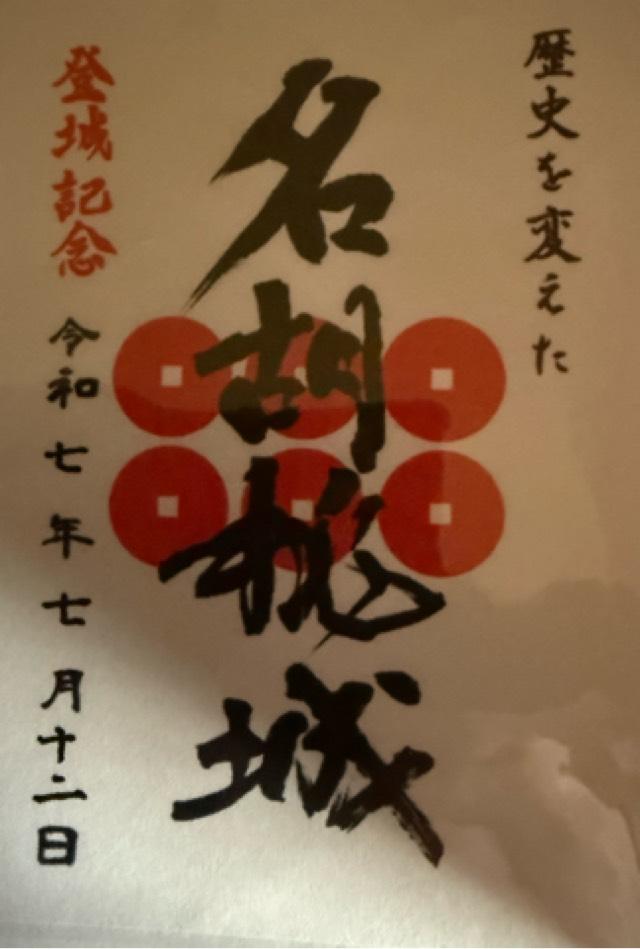 歴史を変えた
名胡桃城
登城記念
令和七年七月十二日